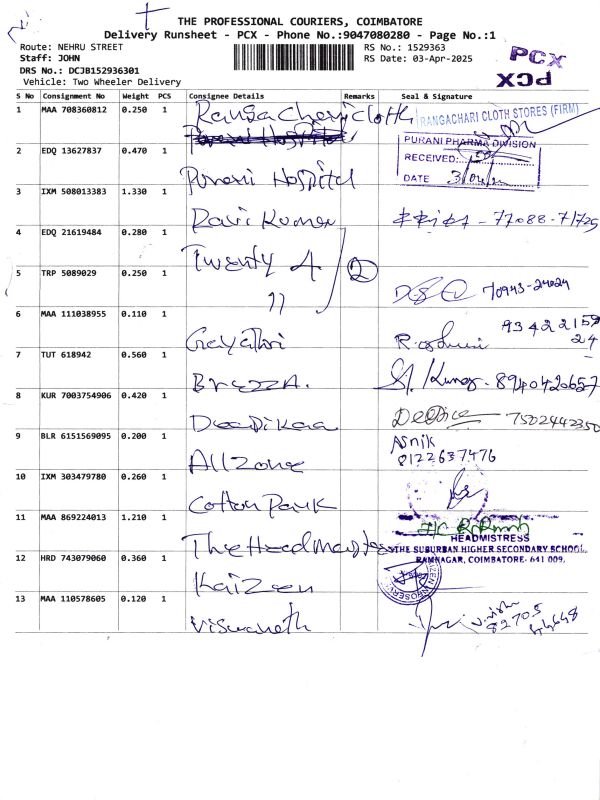 THE PROFESSIONAL COURIERS, COIMBATORE
Delivery Runsheet - PCX - Phone No.:9047080280 - Page No.:1
Route: NEHRU STREET
Staff: JOHN
DRS No.: DCJB152936301
Vehicle: Two Wheeler Delivery
RS No.: 1529363
RS Date: 03-Apr-2025
PCX
PCX
S No Consignment No Weight PCS Consignee Details Remarks Seal & Signature
1 MAA 708360812 0.250 1 Rangachari cloth RANGACHARI CLOTH STORES (FIRM)
Purani Hospital
PURANI PHARMA DIVISION
RECEIVED:
DATE 3/04/
2 EDQ 13627837 0.470 1 Purani Hospital
3 IXM 508013383 1.330 1 Ravi Kumar 77088-71725
4 EDQ 21619484 0.280 1 Twenty 4 2
5 TRP 5089029 0.250 1 " 70943-24024
6 MAA 111038955 0.110 1 Gayathri 93422159
24
7 TUT 618942 0.560 1 Brezza. 8940420657
8 KUR 7003754906 0.420 1 Deepikaa 7502442350
9 BLR 6151569095 0.200 1 All zone Asnik
8122637476
10 IXM 303479780 0.260 1 Cotton Park
11 MAA 869224013 1.210 1 The Head Master
HEADMISTRESS
THE SUBURBAN HIGHER SECONDARY SCHOOL,
RAMNAGAR, COIMBATORE- 641 009.
12 HRD 743079060 0.360 1 Kaizeen
13 MAA 110578605 0.120 1 Viswanath
82705
44648